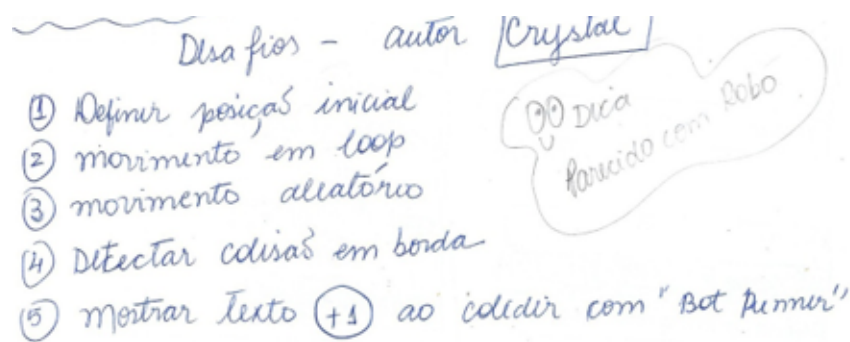 Desafios - autor Crystal
① Definir posição inicial
② movimento em loop
③ movimento aleatório
④ Detectar colisão em borda
⑤ Mostrar texto +1 ao colidir com "Bot Runner"
Dica
Parecido com Robo